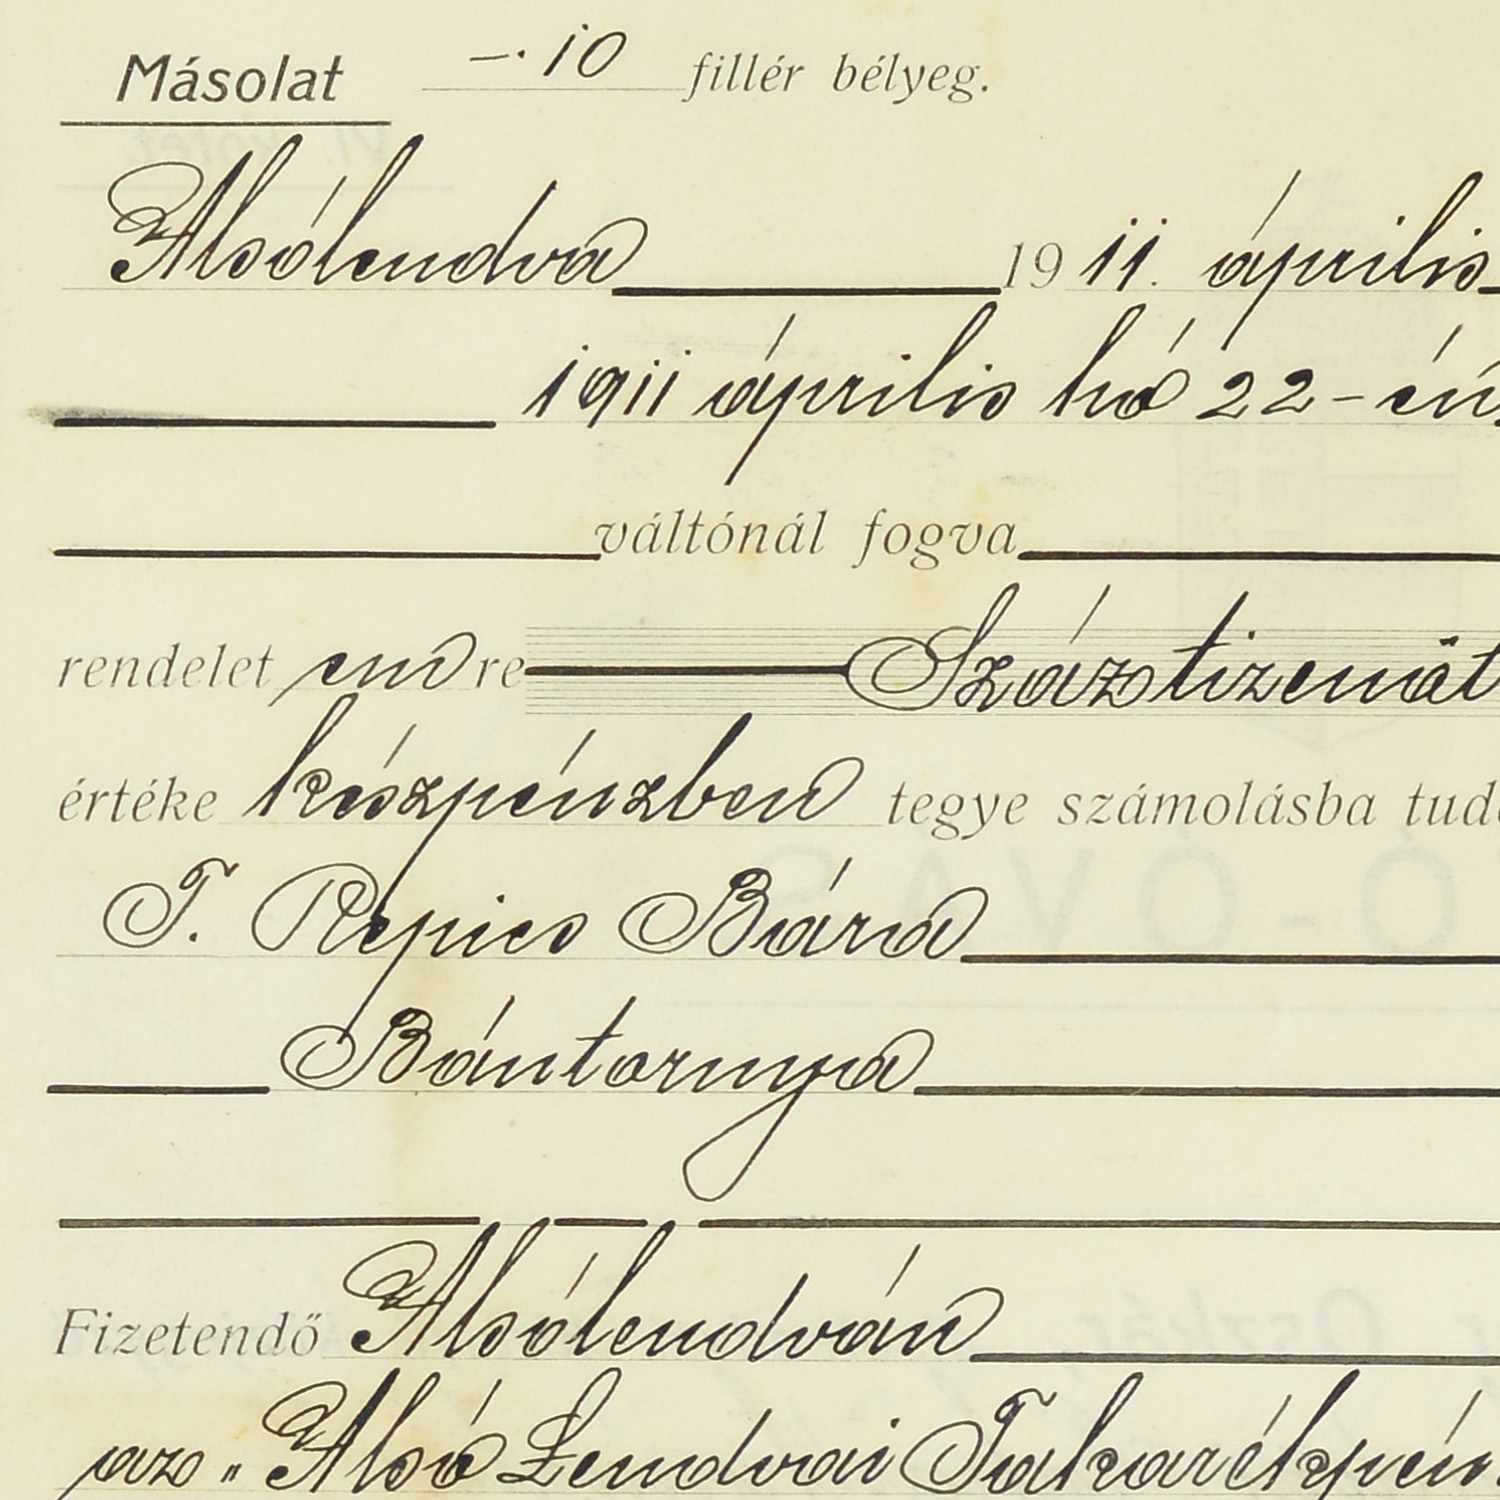 Másolat –·10 fillér bélyeg.
Alsólendva 1911. április
1911 április hó 22-én
váltónál fogva
rendelet en re Száztizenöt
értéke készpénzben tegye számolásba
T. Repics Bára
Bántornya
Fizetendő Alsólendván
az „Alsó Lendvai Takarékpén